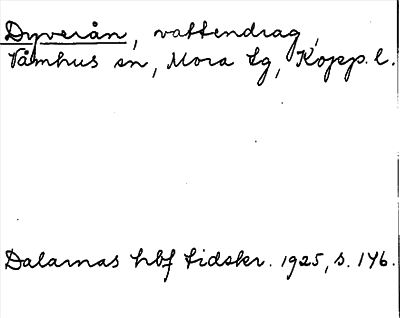 Dyverån, vattendrag,
Våmhus sn, Mora tg, Kopp. l.
Dalarnas hbf tidskr. 1925, s. 146.